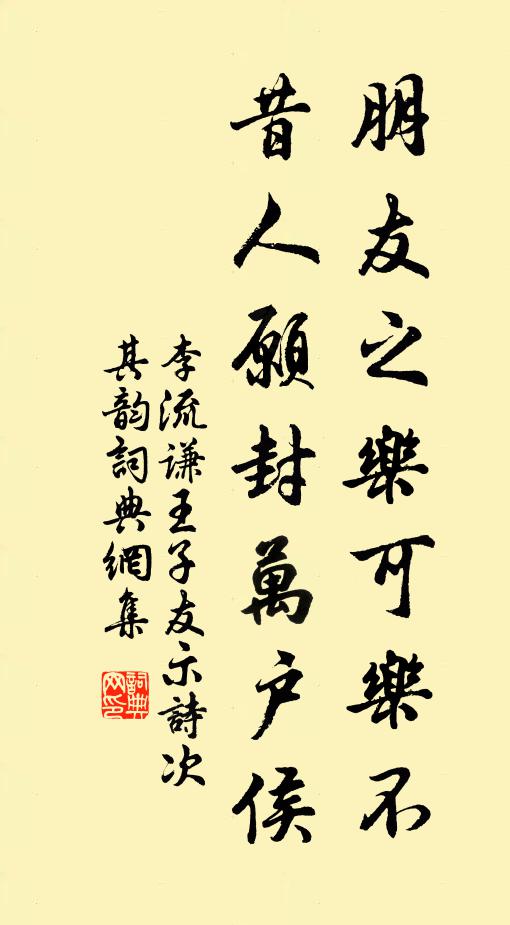 朋友之樂可樂不
昔人願封萬户侯
李流謙王子友示詩次
其韵詞典網集
詞典網印